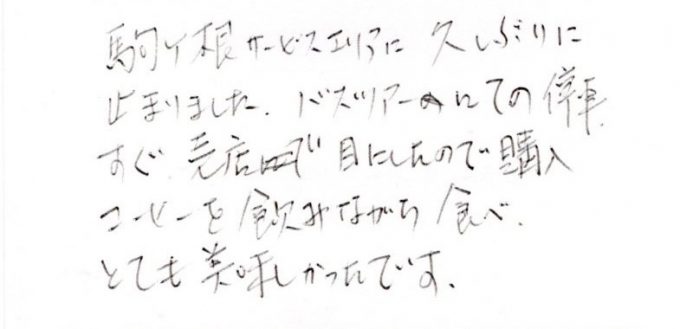 駒ヶ根サービスエリアに 久しぶりに
止まりました。バスツアーにての停車。
すぐ 売店で 目にしたので購入
コーヒーを 飲みながら 食べ、
とても美味しかったです。